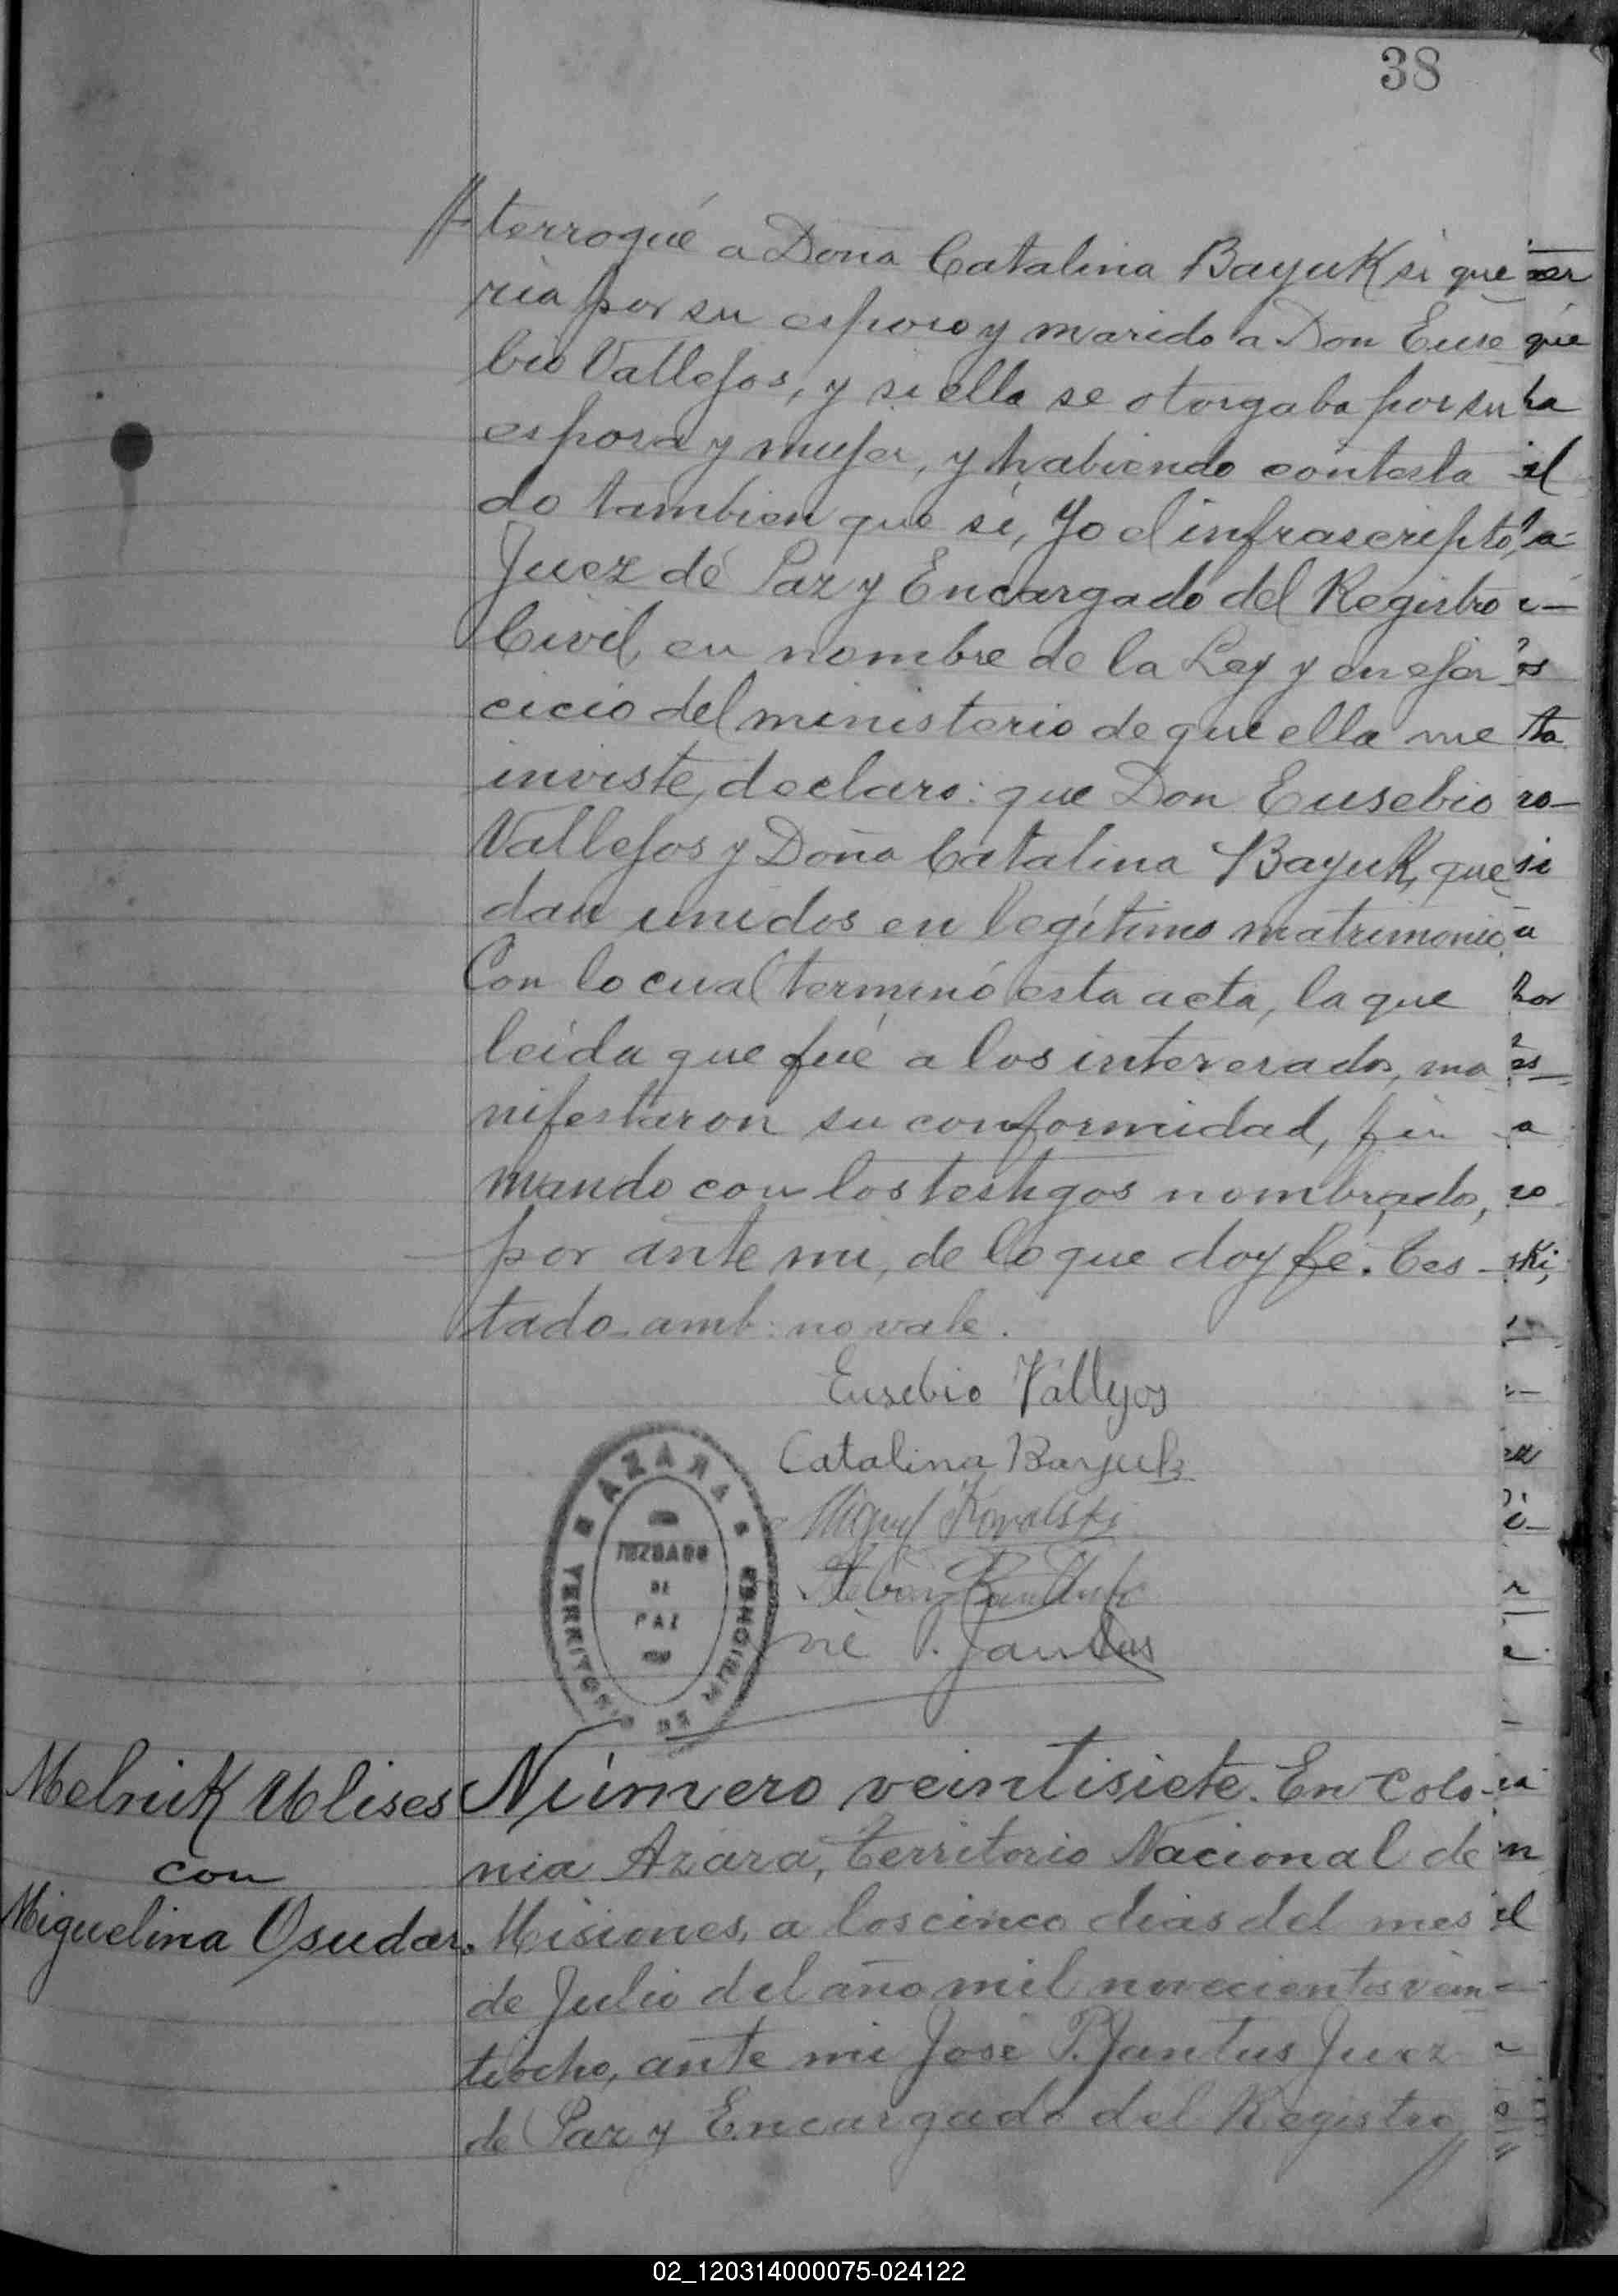 38
terrogué a Doña Catalina Bayuk si que
ria por su esposo y marido a Don Euse
bio Vallejos, y si ella se otorgaba por su
esposa y mujer, y habiendo contesta
do tambien que si, Yo el infrascripto,
Juez de Paz y Encargado del Registro
Civil, en nombre de la Ley y en ejer
cicio del ministerio de que ella me
inviste, declaro: que Don Eusebio
Vallejos y Doña Catalina Bayuk, que
dan unidos en legítimo matrimonio.
Con lo cual terminó esta acta, la que
leída que fué a los interesados, ma
nifestaron su conformidad, fir
mando con los testigos nombrados,
por ante mi, de lo que doy fé. Tes
tado - amb: no vale.
Eusebio Vallejos
Catalina Bayuk
Miguel Kowalski
P. Jantus
AZARA
JUZGADO
DE
PAZ
TERRITORIO DE MISIONES
Melnik Ulises
con
Miguelina Osudar.
Número veintisiete. En Colo-
nia Azara, Territorio Nacional de
Misiones, a los cinco dias del mes
de Julio del año mil novecientos vein
tiocho, ante mi José P. Jantus Juez
de Paz y Encargado del Registro
02_120314000075-024122